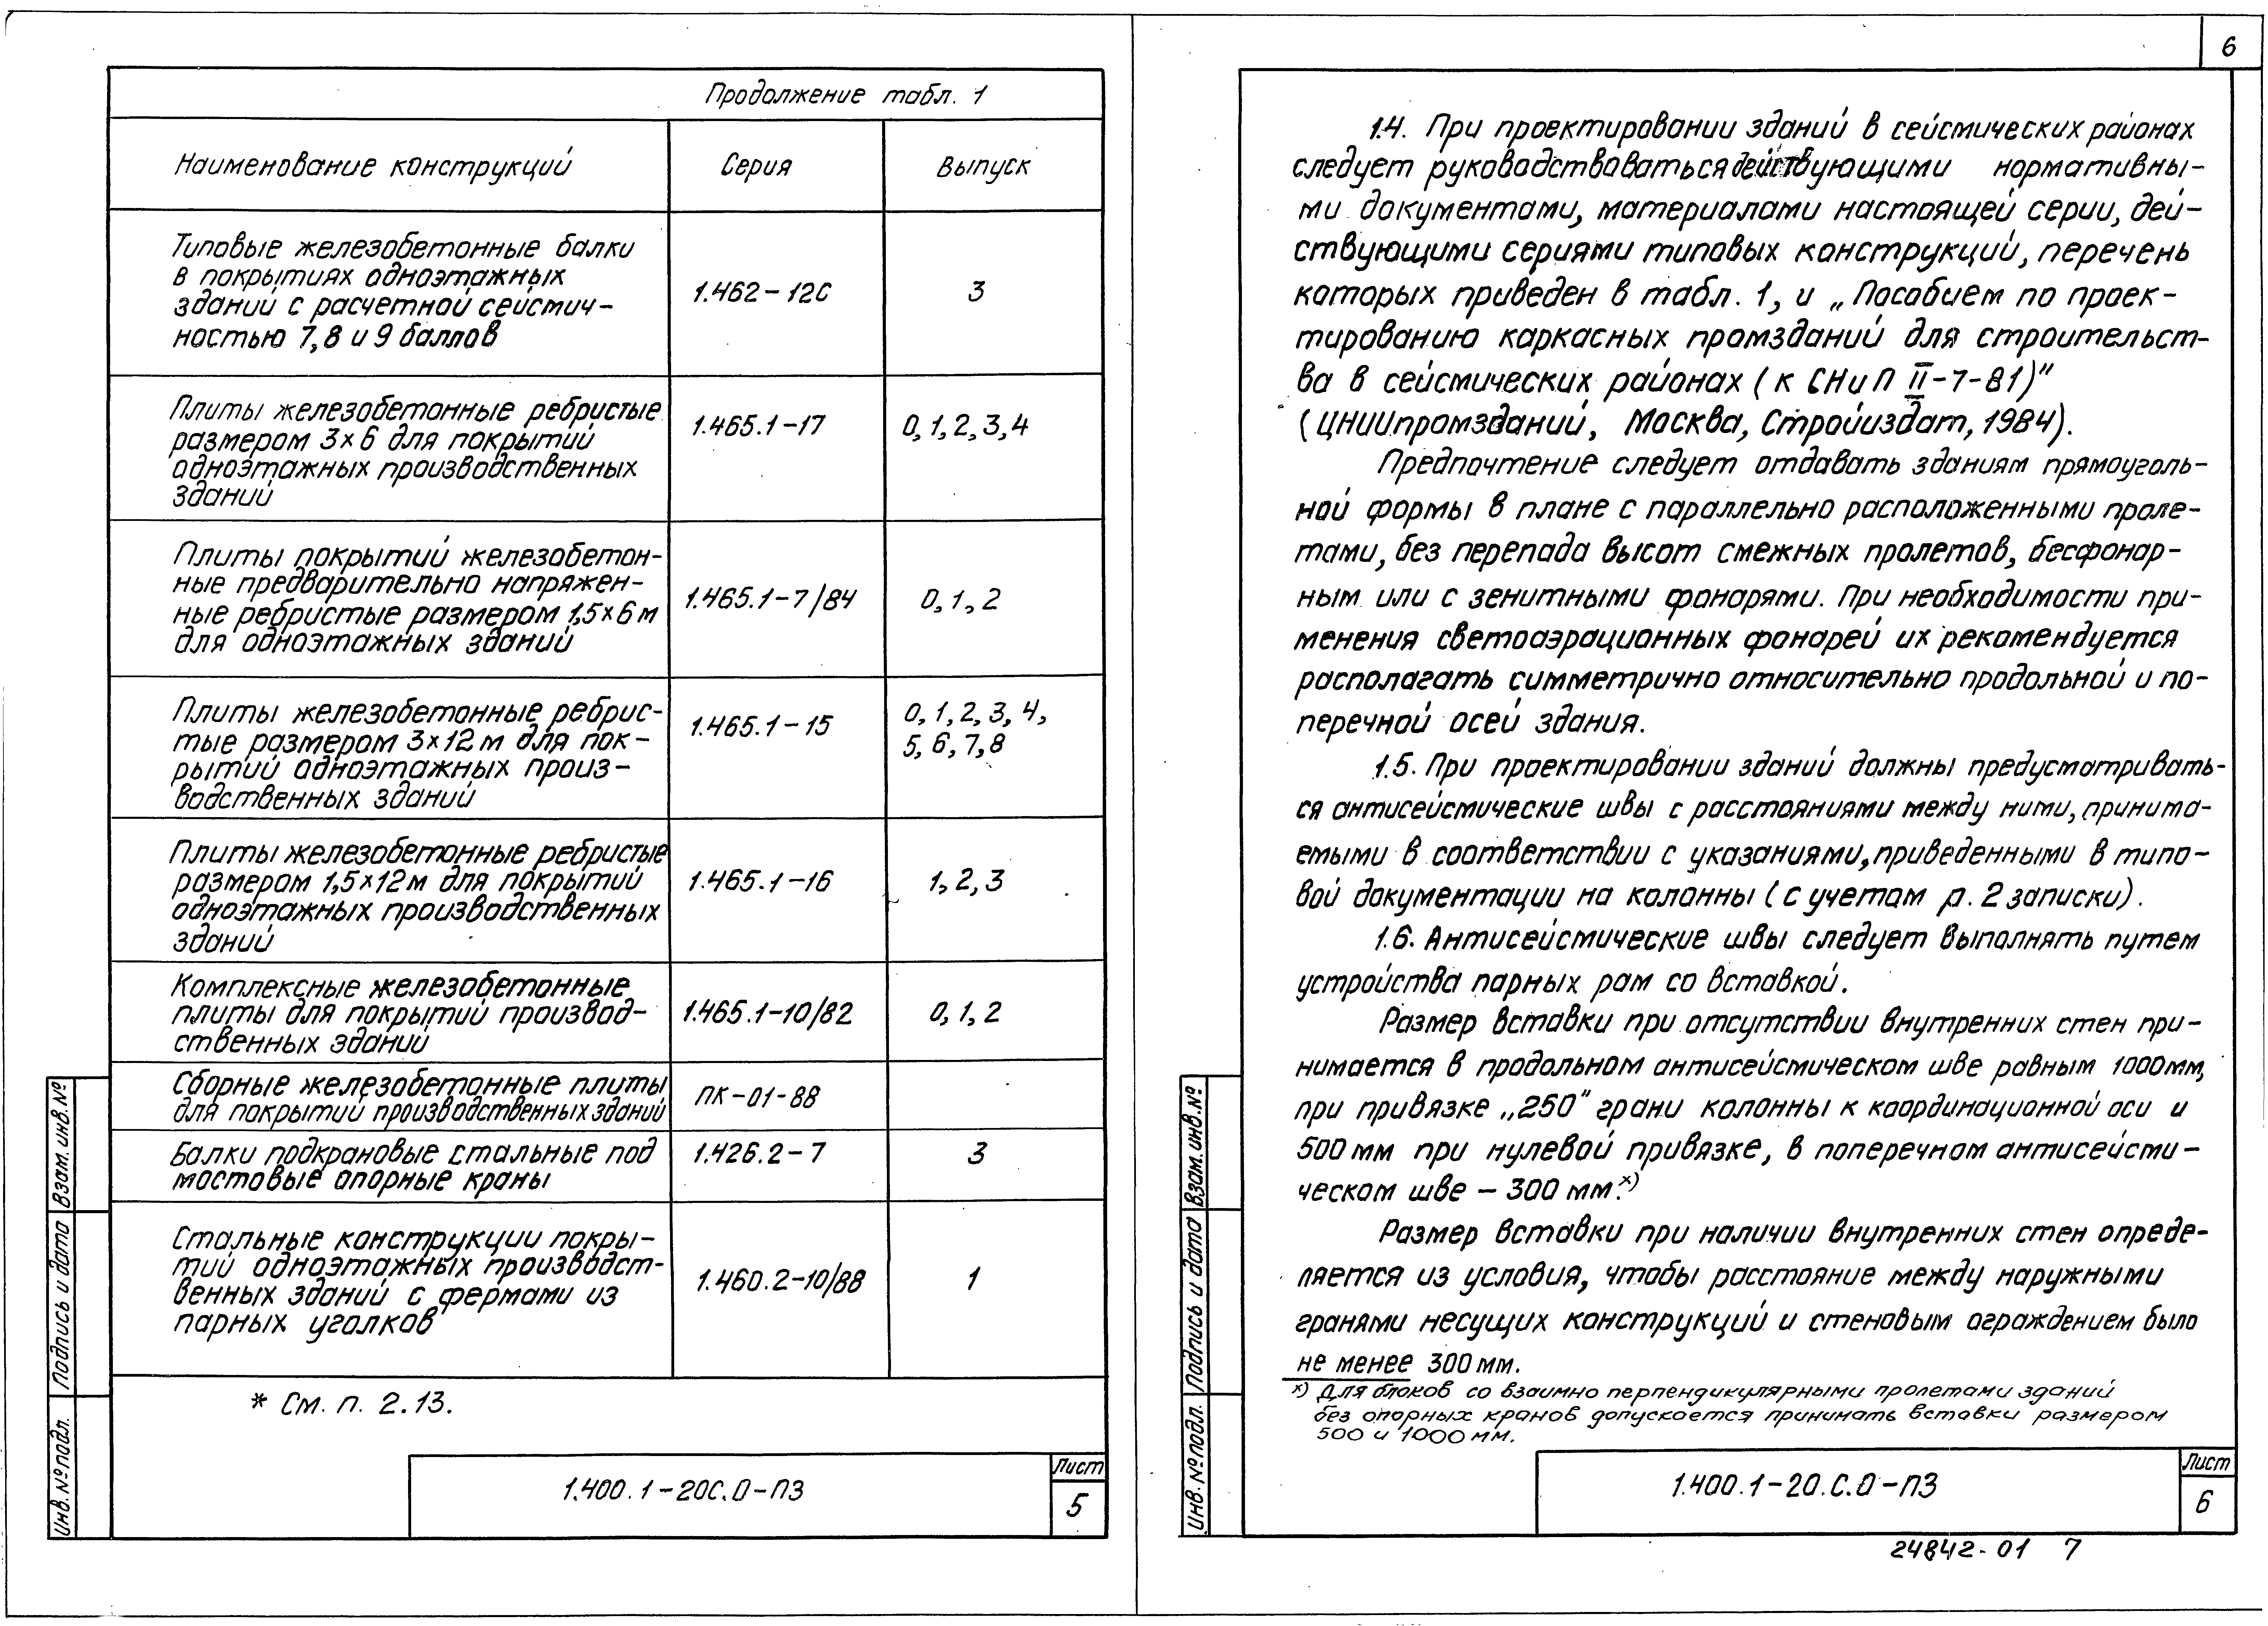 Продолжение табл. 1
Наименование конструкций
Серия
Выпуск
Типовые железобетонные балки
в покрытиях одноэтажных
зданий с расчетной сейсмич-
ностью 7, 8 и 9 баллов
1.462-12С
3
Плиты железобетонные ребристые
размером 3×6 для покрытий
одноэтажных производственных
зданий
1.465.1-17
0, 1, 2, 3, 4
Плиты покрытий железобетон-
ные предварительно напряжен-
ные ребристые размером 1,5×6 м
для одноэтажных зданий
1.465.1-7/84
0, 1, 2
Плиты железобетонные ребрис-
тые размером 3×12 м для пок-
рытий одноэтажных произ-
водственных зданий
1.465.1-15
0, 1, 2, 3, 4,
5, 6, 7, 8
Плиты железобетонные ребристые
размером 1,5×12 м для покрытий
одноэтажных производственных
зданий
1.465.1-16
1, 2, 3
Комплексные железобетонные
плиты для покрытий производ-
ственных зданий
1.465.1-10/82
0, 1, 2
Сборные железобетонные плиты
для покрытий производственных зданий
ПК-01-88
Балки подкрановые стальные под
мостовые опорные краны
1.426.2-7
3
Стальные конструкции покры-
тий одноэтажных производст-
венных зданий с фермами из
парных уголков
1.460.2-10/88
1
* См. п. 2.13.
Инв. № подл.
Подпись и дата
Взам. инв. №
1.400.1-20С.0-ПЗ
Лист
5
6
1.4. При проектировании зданий в сейсмических районах
следует руководствоваться действующими нормативны-
ми документами, материалами настоящей серии, дей-
ствующими сериями типовых конструкций, перечень
которых приведен в табл. 1, и „Пособием по проек-
тированию каркасных промзданий для строительст-
ва в сейсмических районах (к СНиП II-7-81)"
(ЦНИИпромзданий, Москва, Стройиздат, 1984).
Предпочтение следует отдавать зданиям прямоуголь-
ной формы в плане с параллельно расположенными проле-
тами, без перепада высот смежных пролетов, бесфонар-
ным или с зенитными фонарями. При необходимости при-
менения светоаэрационных фонарей их рекомендуется
располагать симметрично относительно продольной и по-
перечной осей здания.
1.5. При проектировании зданий должны предусматривать-
ся антисейсмические швы с расстояниями между ними, принима-
емыми в соответствии с указаниями, приведенными в типо-
вой документации на колонны (с учетом р. 2 записки).
1.6. Антисейсмические швы следует выполнять путем
устройства парных рам со вставкой.
Размер вставки при отсутствии внутренних стен при-
нимается в продольном антисейсмическом шве равным 1000мм,
при привязке „250" грани колонны к координационной оси и
500 мм при нулевой привязке, в поперечном антисейсми-
ческом шве – 300 мм.х)
Размер вставки при наличии внутренних стен опреде-
ляется из условия, чтобы расстояние между наружными
гранями несущих конструкций и стеновым ограждением было
не менее 300 мм.
х) Для блоков со взаимно перпендикулярными пролетами зданий
без опорных кранов допускается принимать вставки размером
500 и 1000 мм.
Инв. № подл.
Подпись и дата
Взам. инв. №
1.400.1-20.С.0-ПЗ
Лист
6
24842-01 7